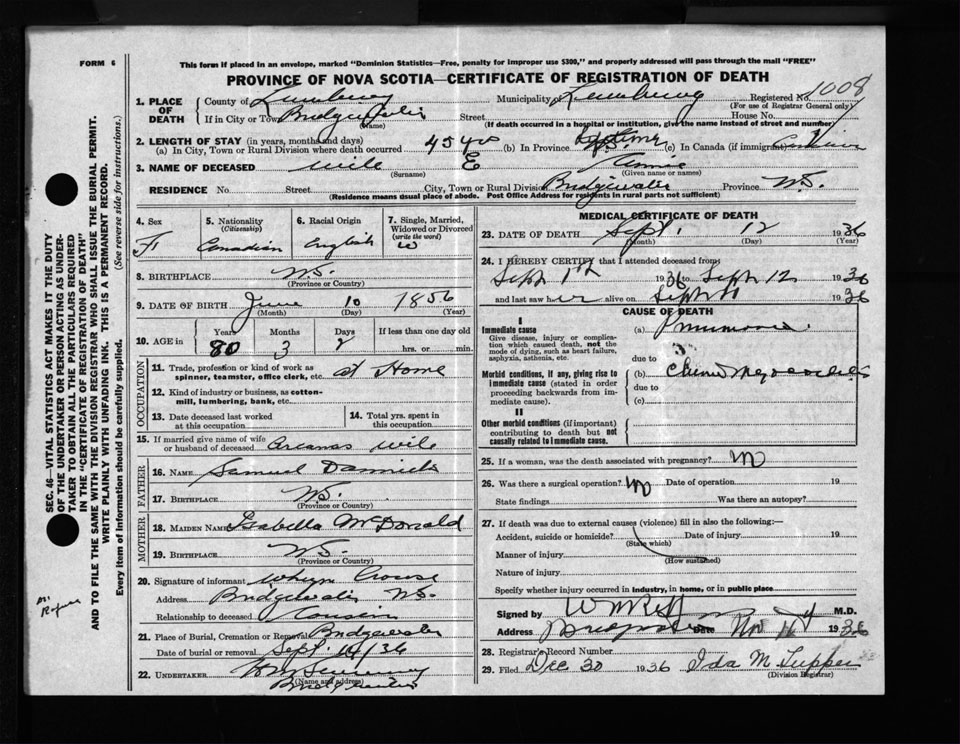 FORM 6
This form if placed in an envelope, marked "Dominion Statistics—Free, penalty for improper use $300," and properly addressed will pass through the mail "FREE"
PROVINCE OF NOVA SCOTIA—CERTIFICATE OF REGISTRATION OF DEATH
1. PLACE OF DEATH
County of Lunenburg Municipality Lunenburg Registered No. 1008
(For use of Registrar General only)
If in City or Town Bridgewater Street House No.
(Name) (If death occurred in a hospital or institution, give the name instead of street and number)
2. LENGTH OF STAY (in years, months and days)
(a) In City, Town or Rural Division where death occurred 45 (b) In Province (c) In Canada (if immigrant)
3. NAME OF DECEASED Wile E Annie
(Surname) (Given name or names)
RESIDENCE No. Street City, Town or Rural Division Bridgewater Province N.S.
(Residence means usual place of abode. Post Office Address for residents in rural parts not sufficient)
4. Sex F
5. Nationality (Citizenship) Canadian
6. Racial Origin English
7. Single, Married, Widowed or Divorced (write the word) W
8. BIRTHPLACE N.S.
(Province or Country)
9. DATE OF BIRTH June 10 1856
(Month) (Day) (Year)
10. AGE in Years Months Days If less than one day old
80 3 2 hrs. or min.
OCCUPATION
11. Trade, profession or kind of work as spinner, teamster, office clerk, etc. at Home
12. Kind of industry or business, as cotton-mill, lumbering, bank, etc.
13. Date deceased last worked at this occupation
14. Total yrs. spent in this occupation
15. If married give name of wife or husband of deceased Wile
FATHER
16. NAME Samuel Daniels
17. BIRTHPLACE N.S.
(Province or Country)
MOTHER
18. MAIDEN NAME Isabella McDonald
19. BIRTHPLACE N.S.
(Province or Country)
20. Signature of informant Crouse
Address Bridgewater N.S.
Relationship to deceased Cousin
21. Place of Burial, Cremation or Removal Bridgewater
Date of burial or removal Sept. 14/36
22. UNDERTAKER
(Name and address)
Bridgewater
MEDICAL CERTIFICATE OF DEATH
23. DATE OF DEATH Sept. 12 1936
(Month) (Day) (Year)
24. I HEREBY CERTIFY that I attended deceased from
Sept 1st 1936 to Sept 12 1936
and last saw her alive on Sept 11 1936
CAUSE OF DEATH
I
Immediate cause
Give disease, injury or complication which caused death, not the mode of dying, such as heart failure, asphyxia, asthenia, etc.
(a) Pneumonia
due to
Morbid conditions, if any, giving rise to immediate cause (stated in order proceeding backwards from immediate cause).
(b) Chronic Myocarditis
due to
(c)
II
Other morbid conditions (if important) contributing to death but not causally related to immediate cause.
25. If a woman, was the death associated with pregnancy? No
26. Was there a surgical operation? No Date of operation 19
State findings Was there an autopsy?
27. If death was due to external causes (violence) fill in also the following:—
Accident, suicide or homicide? Date of injury 19
(State which)
Manner of injury
(How sustained)
Nature of injury
Specify whether injury occurred in industry, in home, or in public place
Signed by M.D.
Address Bridgewater Date Nov 1936
28. Registrar's Record Number
29. Filed Dec 30 1936 Ida M Tupper
(Division Registrar)
SEC. 46—VITAL STATISTICS ACT MAKES IT THE DUTY
OF THE UNDERTAKER OR PERSON ACTING AS UNDER-
TAKER TO OBTAIN ALL THE PARTICULARS REQUIRED
IN THE "CERTIFICATE OF REGISTRATION OF DEATH"
AND TO FILE THE SAME WITH THE DIVISION REGISTRAR WHO SHALL ISSUE THE BURIAL PERMIT.
WRITE PLAINLY WITH UNFADING INK. THIS IS A PERMANENT RECORD.
Every item of information should be carefully supplied. (See reverse side for instructions.)